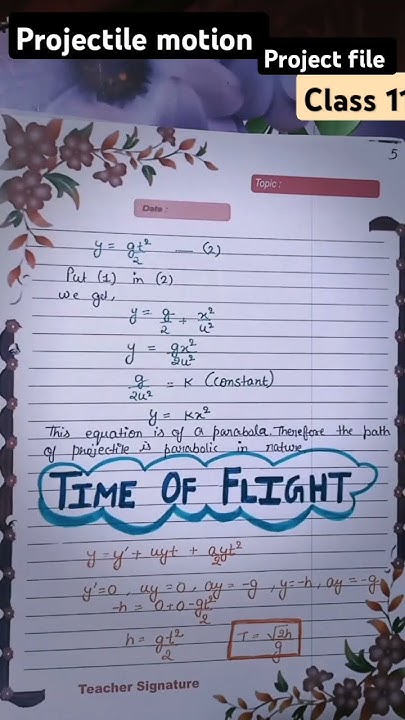 Projectile motion
Project file
Class 11
5
Topic :
Date :
y = gt²/2 — (2)
Put (1) in (2)
we get,
y = g/2 + x²/u²
y = gx²/2u²
g/2u² = K (constant)
y = Kx²
This equation is of a parabola. Therefore the path
of projectile is parabolic in nature
TIME OF FLIGHT
y = y' + uyt + ayt²/2
y'=0, uy = 0, ay = -g, y=-h, ay = -g
-h = 0+0-gt²/2
h = gt²/2 T = √2h/g
Teacher Signature